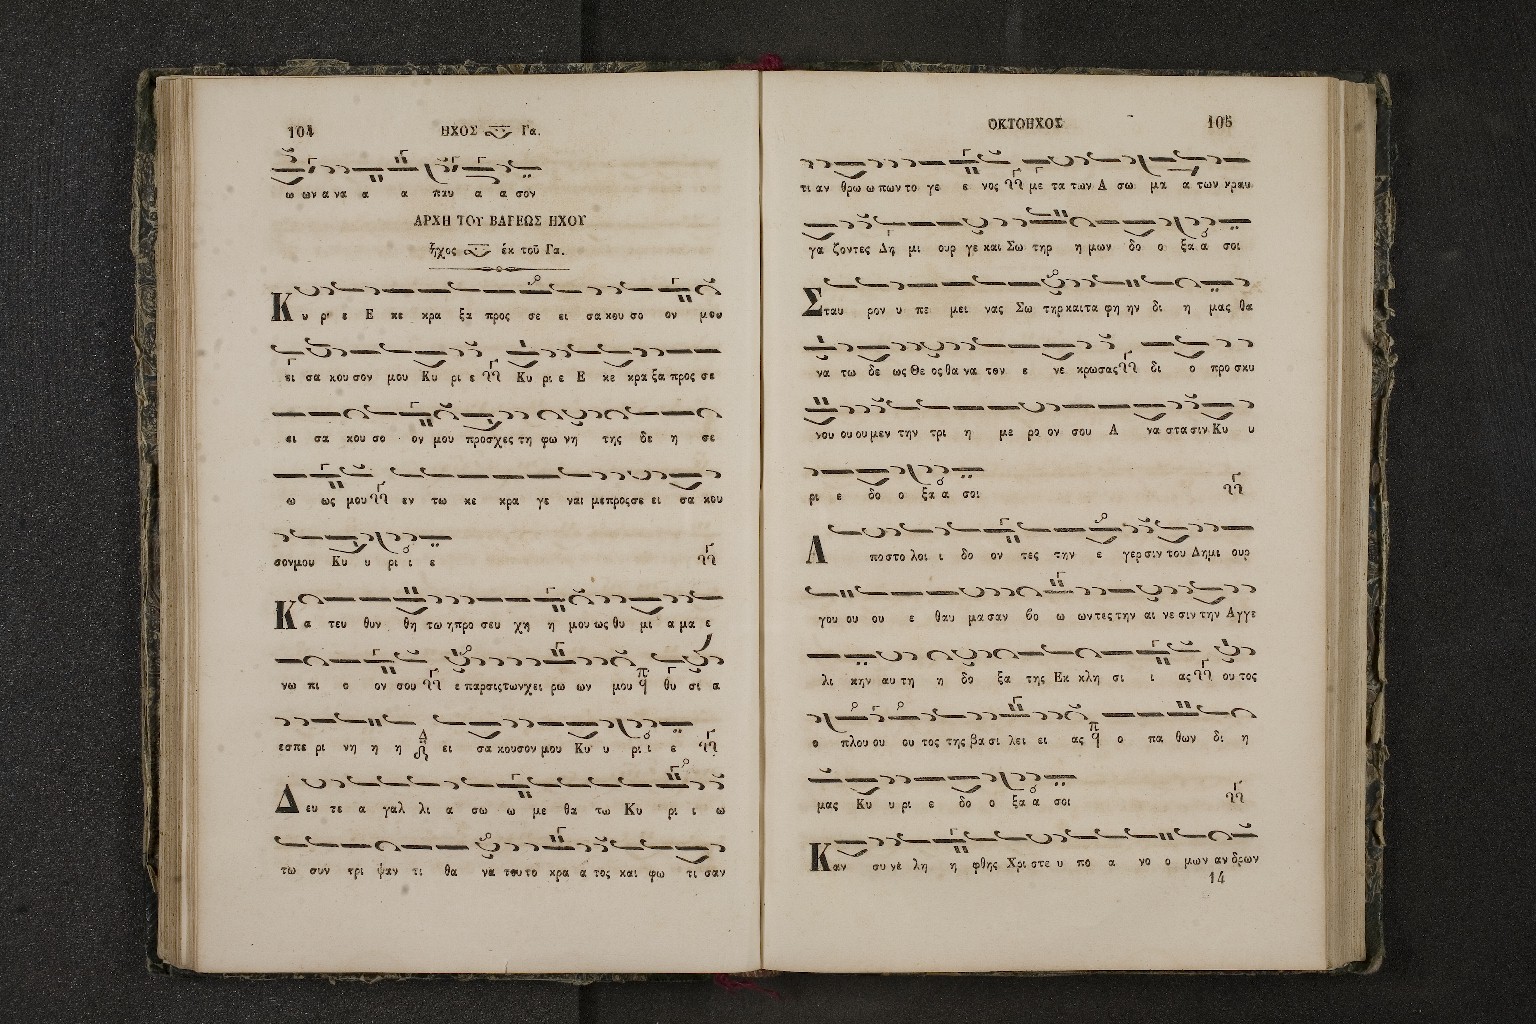 104 ΗΧΟΣ Γα.
ω ων α να α α παυ α α σον
ΑΡΧΗ ΤΟΥ ΒΑΡΕΩΣ ΗΧΟΥ
ἦχος ἐκ τοῦ Γα.
Κ υ ρι ε Ε κε κρα ξα προς σε ει σα κου σο ον μου
ει σα κου σον μου Κυ ρι ε Κυ ρι ε Ε κε κρα ξα προς σε
ει σα κου σο ον μου προσχες τη φω νη της δε η σε
ω ως μου εν τω κε κρα γε ναι με προς σε ει σα κου
σον μου Κυ υ ρι ι ε
Κ α τευ θυν θη τω η προ σευ χη η μου ως θυ μι α μα ε
νω πι ο ον σου ε παρσις των χει ρω ων μου θυ σι α
εσπε ρι νη η η ει σα κουσον μου Κυ υ ρι ι ε
Δ ευ τε α γαλ λι α σω ω με θα τω Κυ ρι ι ω
τω συν τρι ψαν τι θα να του το κρα α τος και φω τι σαν
ΟΚΤΩΗΧΟΣ 105
τι αν θρω ω πων το γε ε νος με τα των Α σω μα α των κραυ
γα ζοντες Δη μι ουρ γε και Σω τηρ η μων δο ο ξα α σοι
Σταυ ρον υ πε μει νας Σω τηρ και τα φη ην δι η μας θα
να τω δε ως Θε ος θα να τον ε νε κρωσας δι ο προ σκυ
νου ου ου μεν την τρι η με ρο ον σου Α να στα σιν Κυ υ
ρι ε δο ο ξα α σοι
Α ποστο λοι ι δο ον τες την ε γερ σιν του Δημι ουρ
γου ου ου ε θαυ μα σαν βο ω ωντες την αι νε σιν την Αγγε
λι κην αυ τη η δο ξα της Εκ κλη σι ι ας ου τος
ο πλου ου ου τος της βα σι λει ει ας ο πα θων δι η
μας Κυ υ ρι ε δο ο ξα α σοι
Καν συ νε λη η φθης Χρι στε υ πο α νο ο μων αν δρων
14